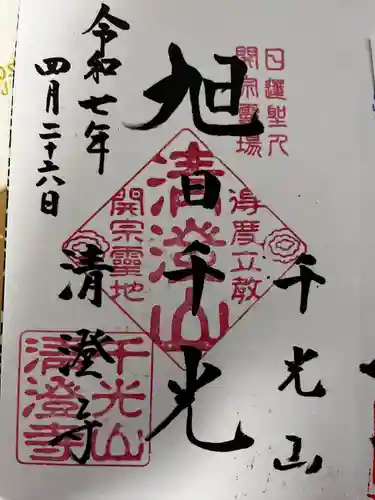 日蓮聖人
開宗靈場
千光山
旭日千光
清澄山
得度立教
開宗靈地
清澄寺
千光山
清澄寺
令和七年
四月二十六日